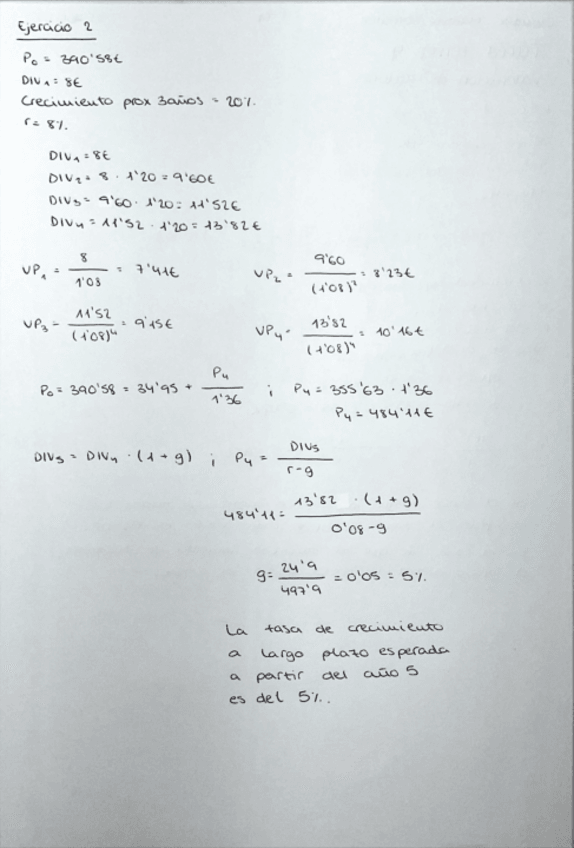 Ejercicio 2
P₀ = 390'58€
DIV₁ = 8€
Crecimiento prox 3años = 20%.
r = 8%.
DIV₁ = 8€
DIV₂ = 8 · 1'20 = 9'60€
DIV₃ = 9'60 · 1'20 = 11'52€
DIV₄ = 11'52 · 1'20 = 13'82€
VP₁ = 8 / 1'08 = 7'41€ VP₂ = 9'60 / (1'08)² = 8'23€
VP₃ = 11'52 / (1'08)⁴ = 9'15€ VP₄ = 13'82 / (1'08)⁴ = 10'16€
P₀ = 390'58 = 34'95 + P₄ / 1'36 ; P₄ = 355'63 · 1'36
P₄ = 484'11€
DIV₅ = DIV₄ · (1 + g) ; P₄ = DIV₅ / r-g
484'11 = 13'82 · (1 + g) / 0'08-g
g = 24'9 / 497'9 = 0'05 = 5%.
La tasa de crecimiento
a largo plazo esperada
a partir del año 5
es del 5%.